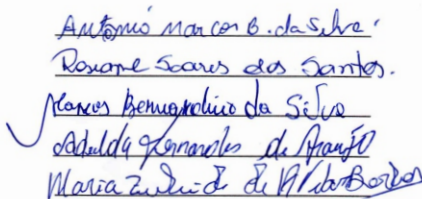 Antônio Marcos B. da Silva
Rosiane Soares dos Santos.
Marcos Bernardino da Silva
Adelda Fernandes de Araújo
Maria de